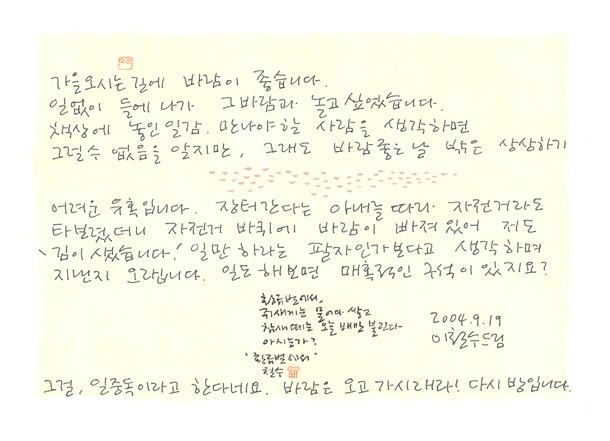 가을오시는길에 바람이 좋습니다.
일없이 들에 나가 그바람과 놀고싶었습니다.
책상에 놓인 일감. 만나야 하는 사람을 생각하면
그럴수 없음을 알지만, 그래도 바람좋은날 밖은 상상하기
어려운 유혹입니다. 장터간다는 아내를 따라 자전거라도
타보렸더니 자전거 바퀴에 바람이 빠져있어 저도
김이 샜습니다! 일만 하라는 팔자인가보다고 생각하며
지낸지 오랩니다. 일도 해보면 매혹적인 구석이 있지요?
황류벌에서,
쥐새끼는 물어다 쌓고
참새떼는 오늘 배만 불린다
아시는가?
"황류벌에서"
철수
2004.9.19
이철수드림
그걸, 일중독이라고 한다네요. 바람은 오고 가시래라! 다시 밤입니다.